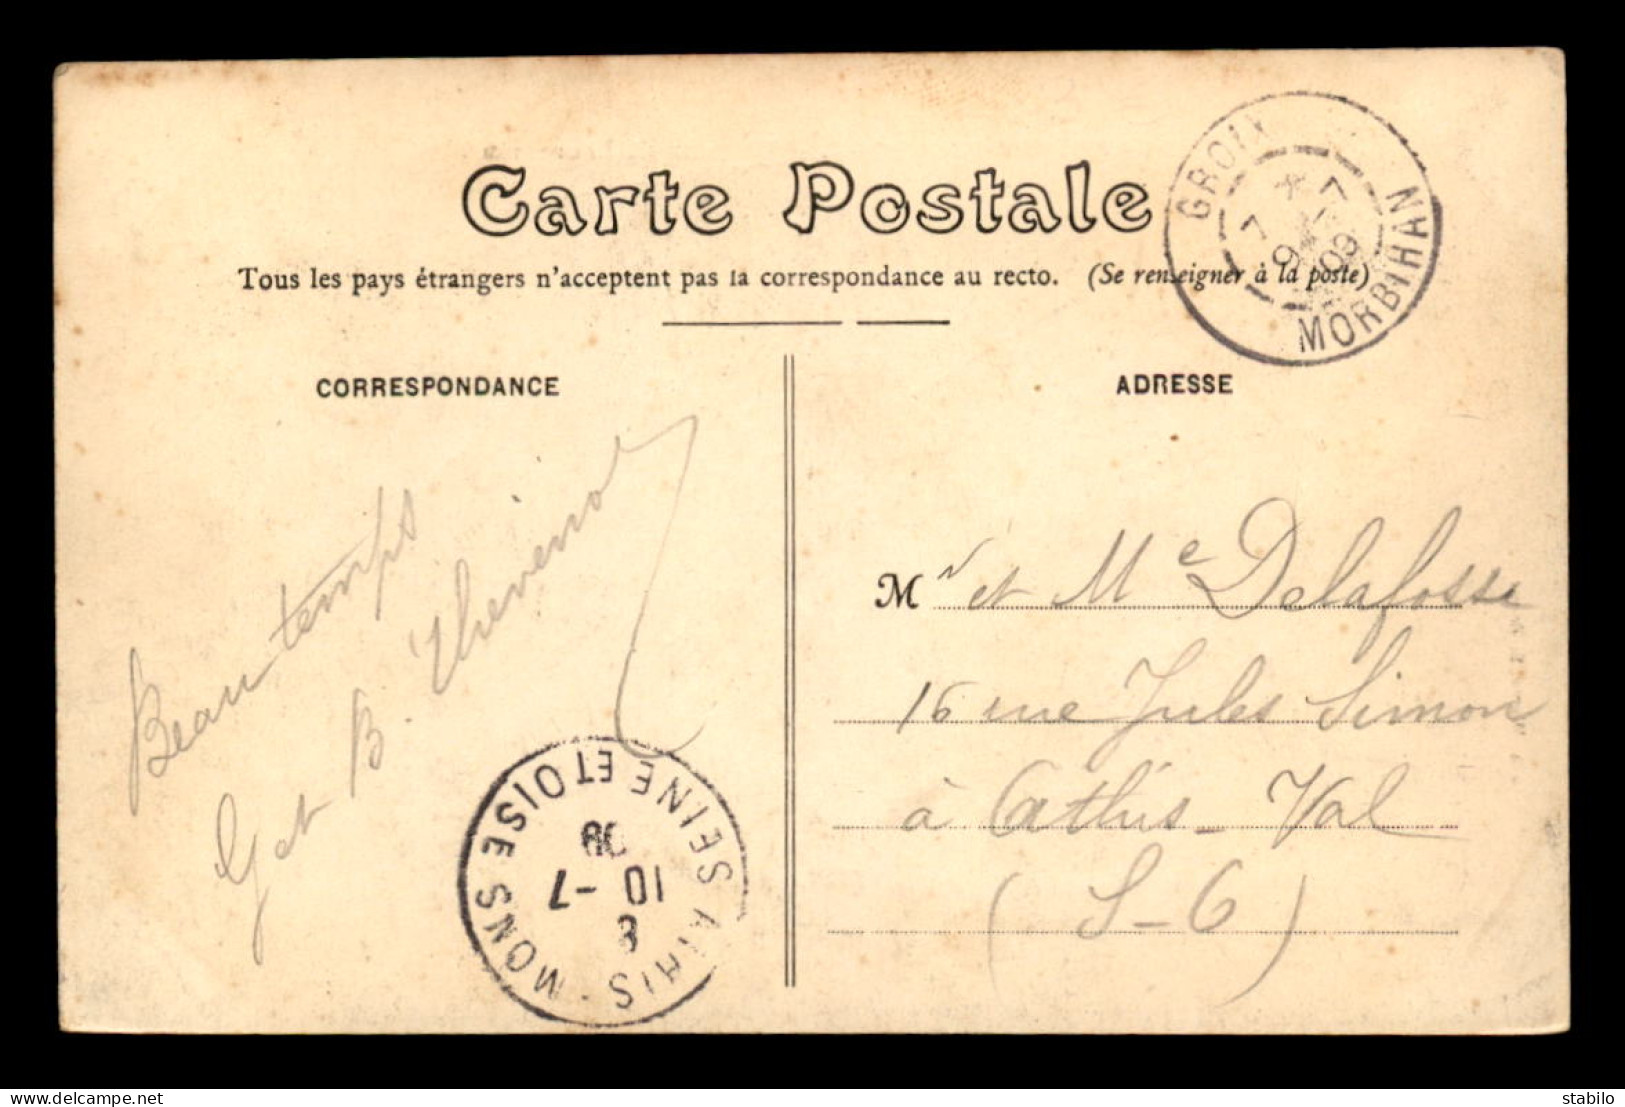 Carte Postale
Tous les pays étrangers n'acceptent pas la correspondance au recto. (Se renseigner à la poste)
GROIX
MORBIHAN
7 * 7
7
9 09
CORRESPONDANCE
ADRESSE
Beau temps
G et B. Thevenot
Mr et Me Delafosse
16 rue Jules Simon
à Athis-Val
(S-O)
ATHIS-MONS SEINE ET OISE
8
10 -7
09
delcampe.net
stabilo